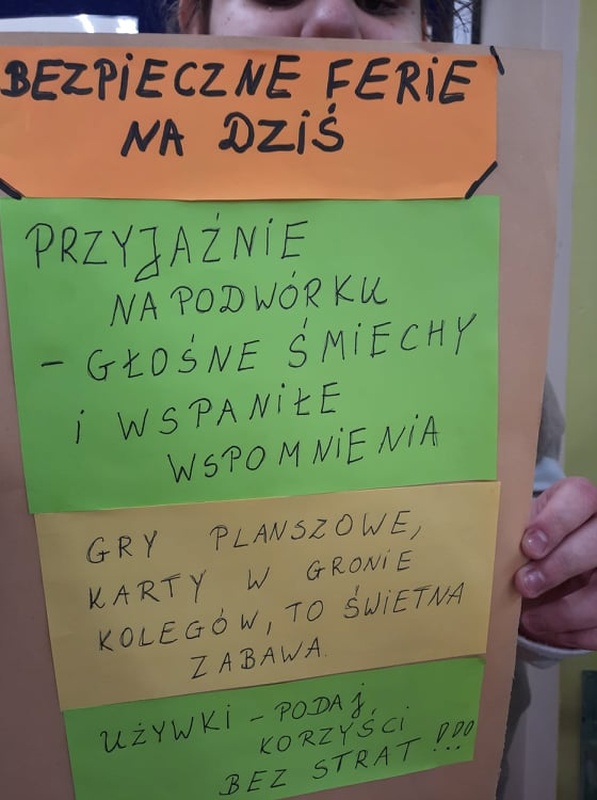 BEZPiECZNE FERiE
NA DZiŚ
PRZYJAŹNiE
NA PODWÓRKU
- GŁOŚNE ŚMiECHY
i WSPANiŁE
WSPOMNiENiA
GRY PLANSZOWE,
KARTY W GRONiE
KOLEGÓW, TO ŚWiETNA
ZABAWA.
UŻYWKi - PODAJ
KORZYŚCi
BEZ STRAT !!!